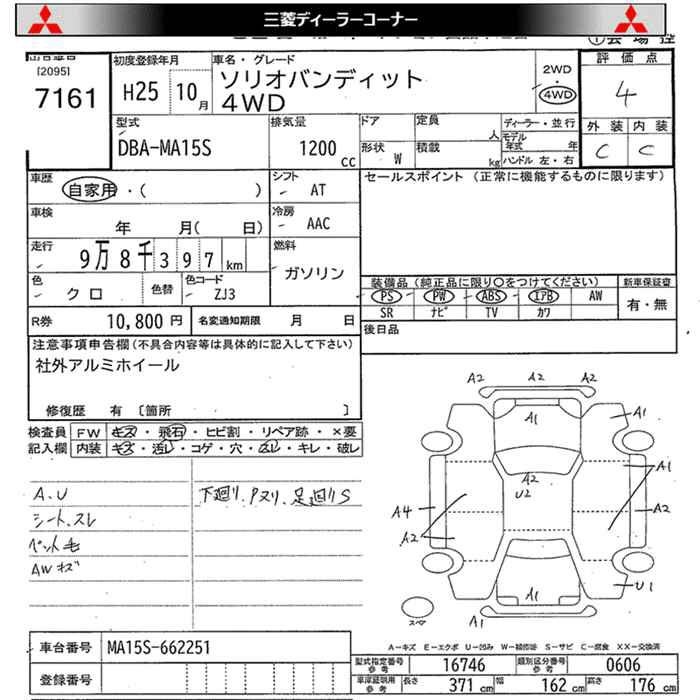 三菱ディーラーコーナー
出品番号
[2095]
7161
初度登録年月
H25 10月
車名・グレード
ソリオバンディット
4WD
2WD
・
4WD
評価点
4
外装 内装
C C
型式
DBA-MA15S
排気量
1200 cc
ドア
形状 W
定員 人
積載 kg
ディーラー・並行
モデル年式 年
ハンドル 左・右
車歴
自家用・( )
シフト
AT
セールスポイント (正常に機能するものに限ります)
車検
年 月( 日)
冷房
AAC
走行
9万8千397km
燃料
ガソリン
色
クロ
色替
色コード
ZJ3
装備品(純正品に限り〇をつけてください)
PS PW ABS IAB AW
SR ナビ TV カワ
新車保証書
有・無
R券 10,800円
名変通知期限 月 日
後日品
注意事項申告欄(不具合内容等は具体的に記入して下さい)
社外アルミホイール
修復歴 有 [箇所 ]
検査員 FW キズ・飛石・ヒビ割・リペア跡・×要
記入欄 内装 キズ・汚レ・コゲ・穴・スレ・キレ・破レ
A.U
シート.スレ
ペット毛
AWキズ
下廻リ、Pヌリ、足廻リS
A2 A2 A2
A1 A1
A2
U2
A1
A4
A2
A2
A1
U1
A1
スペア
A-キズ E-エクボ U-凹み W-補修跡 S-サビ C-腐食 XX-交換済
車台番号 MA15S-662251
登録番号
型式指定番号 参考 16746
類別区分番号 参考 0606
車庫証明用 参考 長さ 371 cm 幅 162 cm 高さ 176 cm